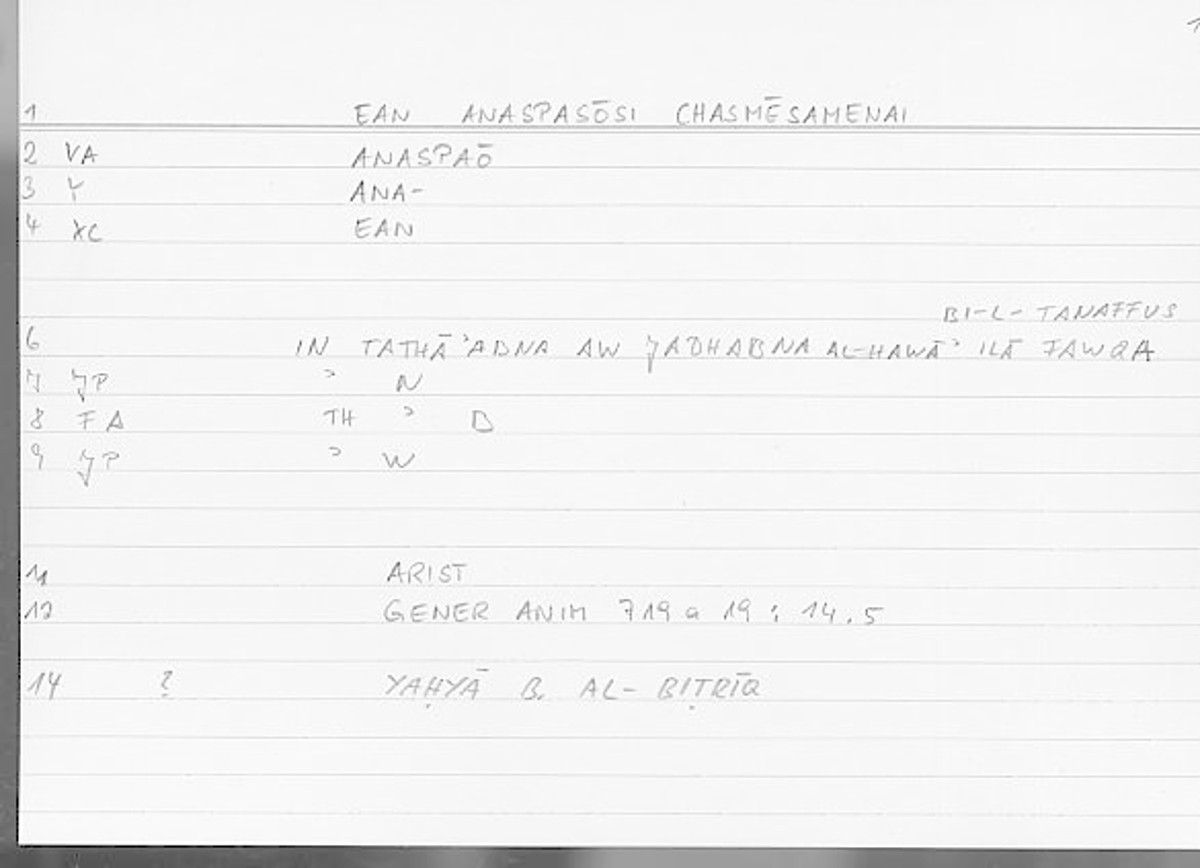 1
1 EAN ANASPASŌSI CHASMĒSAMENAI
2 VA ANASPAŌ
3 Y ANA-
4 XC EAN
BI-L-TANAFFUS
6 IN TATHĀʾABNA AW JADHABNA AL-HAWĀʾ ILĀ FAWQA
7 JP ʾ N
8 FA TH ʾ B
9 JP ʾ W
11 ARIST
12 GENER ANIM 719 a 19 ; 14.5
14 ? YAḤYĀ B. AL-BIṬRĪQ